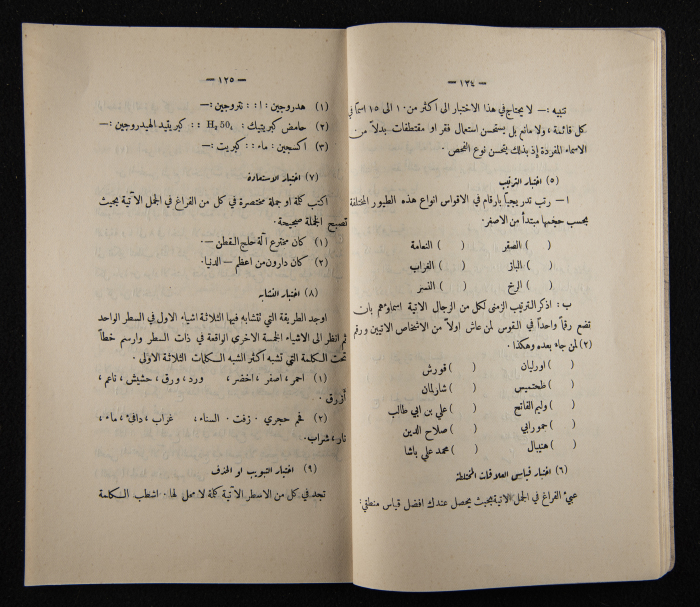 — ١٣٤ —
تنبيه :— لا يحتاج في هذا الاختبار الى اكثر من ١٠ الى ١٥ اسمًا في
كل قائمة ، ولا مانع بل يستحسن استعمال فقر او مقتطفات بدلاً من
الاسماء المفردة إذ بذلك يتحسن نوع الفحص .
(٥) اختبار الترتيب
ا — رتب تدريجيًا بارقام في الاقواس انواع هذه الطيور المختلفة
بحسب حجمها مبتدأ من الاصغر.
( ) الصقر ( ) النعامة
( ) الباز ( ) الغراب
( ) الرخ ( ) النسر
ب : اذكر الترتيب الزمني لكل من الرجال الاتية اسماؤهم بان
تضع رقماً واحداً في القوس لمن عاش اولاً من الاشخاص الاتيين ورقم
(٢) لمن جاء بعده وهكذا .
( ) اورليان ( ) قورش
( ) طحتميس ( ) شارلمان
( ) وليم الفاتح ( ) علي بن ابي طالب
( ) حمورابي ( ) صلاح الدين
( ) هنيبال ( ) محمد علي باشا
(٦) اختبار قياسي العلاقات المختلطة
عبئ الفراغ في الجمل الاتية بحيث يحصل عندك افضل قياس منطقي:
— ١٢٥ —
(١) هدروجين : ا : : نتروجين :—
(٢) حامض كبريتيك : H₂ 50₄ : : كبريتيد الهيدروجين :—
(٣) اكسجين : ماء : : كبريت :—
(٧) اختبار الاستعادة
اكتب كلمة او جملة مختصرة في كل من الفراغ في الجمل الآتية بحيث
تصبح الجملة صحيحة .
(١) كان مخترع آلة حلج القطن —.
(٢) كان دارون من اعظم — الدنيا.
(٨) اختبار التشابه
اوجد الطريقة التي تتشابه فيها الثلاثة اشياء الاول في السطر الواحد
ثم انظر الى الاشياء الخمسة الاخرى الواقعة في ذات السطر وارسم خطاً
تحت الكلمة التي تشبه أكثر الشبه الكلمات الثلاثة الاولى .
(١) احمر ، اصفر ، اخضر ، ورد ، ورق ، حشيش ، ناعم ،
أزرق .
(٢) فحم حجري . زفت . السناء ، غراب ، دافئ ، ماء ،
نار ، شراب .
(٩) اختبار التبويب او الحذف
تجد في كل من الاسطر الآتية كلمة لا محل لها . اشطب الكلمة